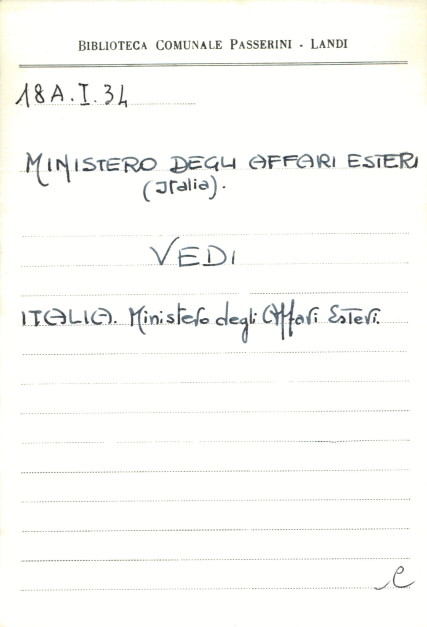 BIBLIOTECA COMUNALE PASSERINI - LANDI
18A.I.34
MINISTERO DEGLI AFFARI ESTERI
(Italia).
VEDI
ITALIA. Ministero degli Affari Esteri.